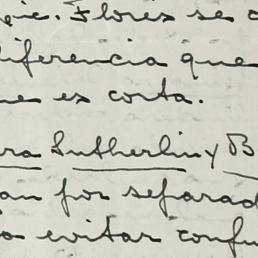 gie. Flores se c
diferencia que
ne es corta.
ra Sutherlin y B
an por separad
o evitar confu